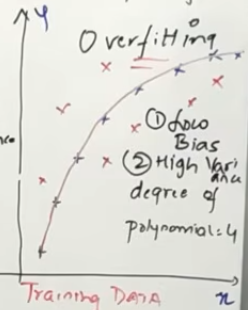 y
Overfitting
① Low
Bias
② High Vari
ance
degree of
polynomial=4
Training DATA
x